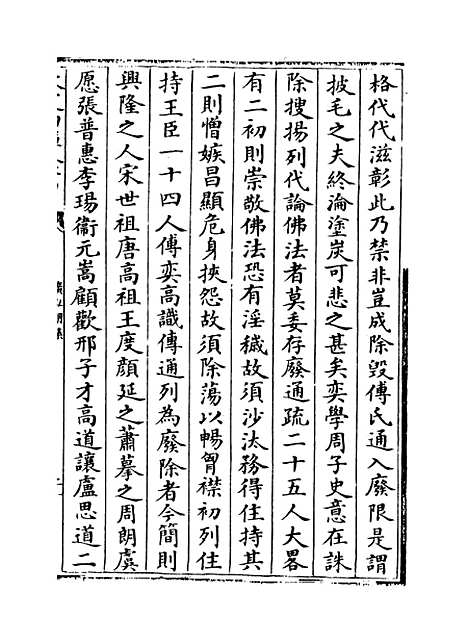 格代代滋彰此乃禁非豈成除毀傅氏通入廢限是謂
披毛之夫終淪塗炭可悲之甚矣奕學周子史意在誅
除搜揚列代論佛法者莫委存廢通疏二十五人大畧
有二初則崇敬佛法恐有淫穢故須沙汰務得住持其
二則憎嫉昌顯危身挾怨故須除蕩以暢胷襟初列住
持王臣一十四人傅奕高識傳通列為廢除者今簡則
興隆之人宋世祖唐高祖王度顔延之蕭摹之周朗虞
愿張普惠李瑒衞元嵩顧歡邢子才高道讓盧思道二